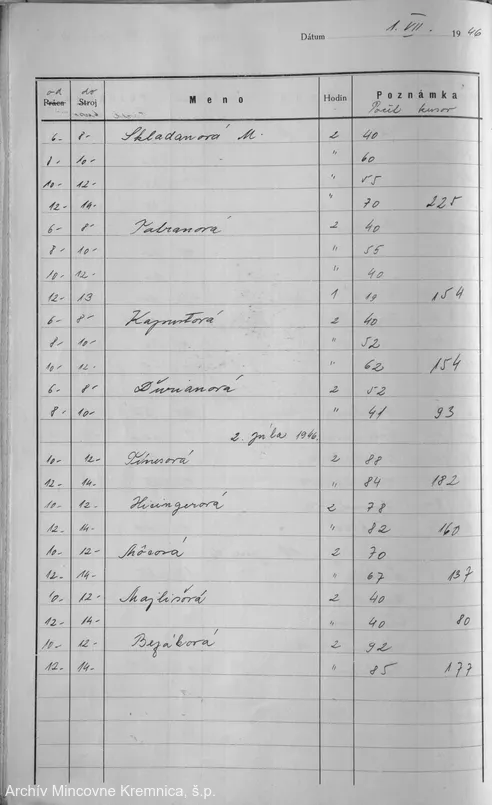 Dátum 1. VII. 1946
od do
Práca Stroj Meno Hodin Poznámka
Počet kusov
6- 8- Skladanová M. 2 40
8- 10- " 60
10- 12- " 55
12- 14- " 70 225
6- 8- Tatranová 2 40
8- 10- " 55
10- 12- " 40
12- 13 1 19 154
6- 8- Kapustová 2 40
8- 10- " 52
10- 12- " 62 154
6- 8- Ďurianová 2 52
8- 10- " 41 93
2. júla 1946.
10- 12- 2 88
12- 14- " 84 182
10- 12- Hicingerová 2 78
12- 14- " 82 160
10- 12- Môcová 2 70
12- 14- " 67 137
10- 12- Majlišová 2 40
12- 14- " 40 80
10- 12- Bezáková 2 92
12- 14- " 85 177
Archív Mincovne Kremnica, š.p.